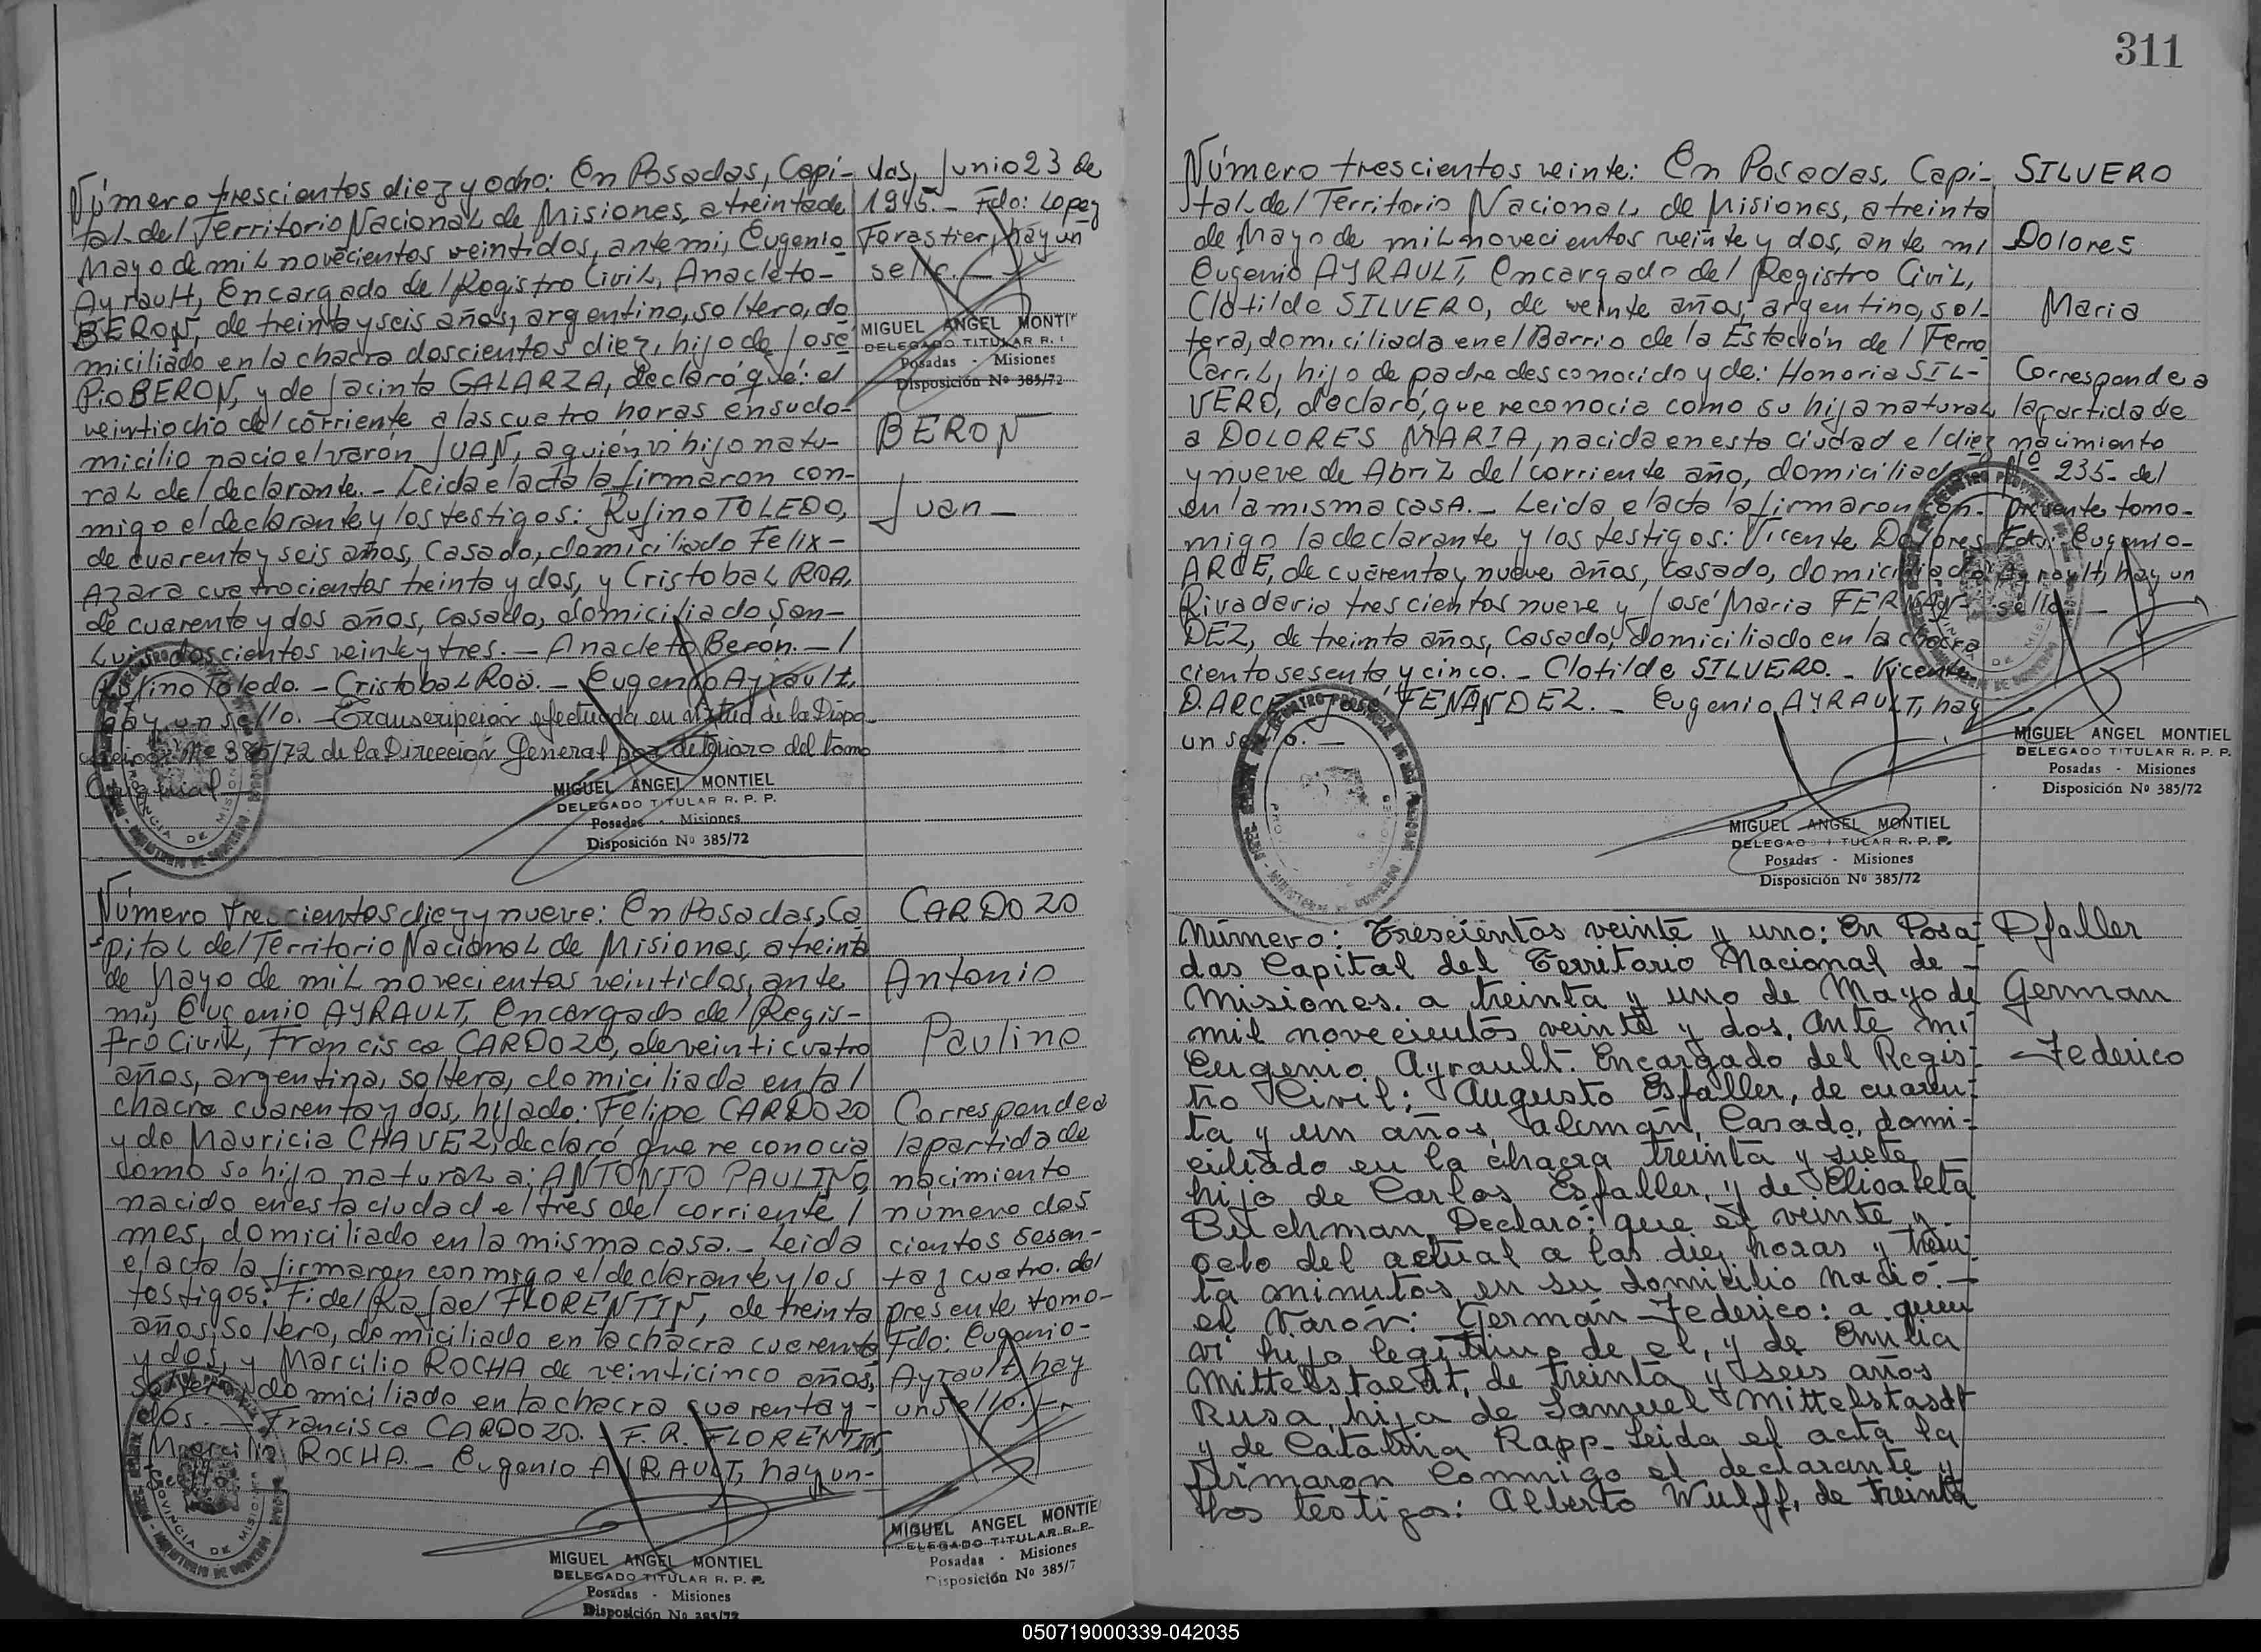 311
Número trescientos diez y ocho: En Posadas, Capi-
tal del Territorio Nacional de Misiones, a treinta de
Mayo de mil novecientos veintidos, ante mi, Eugenio
Ayrault, Encargado del Registro Civil, Anacleto-
BERON, de treinta y seis años, argentino, soltero, do
miciliado en la chacra doscientos diez, hijo de José
Pio BERON, y de Jacinta GALARZA, declaró que: el
veintiocho del corriente a las cuatro horas en su do-
micilio nacio el varón JUAN, a quién vi hijo natu-
ral del declarante.- Leida el acta la firmaron con-
migo el declarante y los testigos: Rufino TOLEDO,
de cuarenta y seis años, Casado, domiciliado Felix-
Azara cuatrocientos treinta y dos, y Cristobal ROA,
de cuarenta y dos años, casado, domiciliado San-
Luis doscientos veinte y tres. - Anacleto Berón. -
Rufino Toledo. - Cristobal Roa. - Eugenio Ayrault,
hay un sello. - Transcripcion efectuada en virtud de la Dispo
sicion Nº 385/72 de la Dirección General por deterioro del tomo
Original
das, Junio 23 de
1945.- Fdo: Lopez
Forastier, hay un
sello. -
MIGUEL ANGEL MONTI
DELEGADO TITULAR R.
Posadas - Misiones
Disposición Nº 385/72
BERON
Juan -
MIGUEL ANGEL MONTIEL
DELEGADO TITULAR R. P. P.
Posadas - Misiones
Disposición Nº 385/72
Número trescientos diez y nueve: En Posadas, Ca
pital del Territorio Nacional de Misiones, a treinta
de Mayo de mil novecientos veintidos, ante
mi, Eugenio AYRAULT, Encargado del Regis-
tro Civil, Francisca CARDOZO, de veinticuatro
años, argentina, soltera, domiciliada en la
chacra cuarenta y dos, hija de: Felipe CARDOZO
y de Mauricia CHAVEZ, declaró que reconocia
como so hijo natural a: ANTONIO PAULINO,
nacido en esta ciudad el tres del corriente
mes, domiciliado en la misma casa. - Leida
el acta la firmaron conmigo el declarante y los
testigos: Fidel Rafael FLORENTIN, de treinta
años, soltero, domiciliado en la chacra cuarenta
y dos, y Marcilio ROCHA de veinticinco años,
soltero, domiciliado en la chacra cuarenta y-
dos. - Francisca CARDOZO. - F. R. FLORENTIN,
Marcilio ROCHA. - Eugenio AYRAULT, hay un-
sello
CARDOZO
Antonio
Paulino
Corresponde a
la partida de
nacimiento
número dos
cientos sesen-
ta y cuatro. del
presente tomo-
Fdo: Eugenio-
Ayrault, hay
un sello. -
MIGUEL ANGEL MONTIEL
DELEGADO TITULAR R. P. P.
Posadas - Misiones
Disposición Nº 385/72
MIGUEL ANGEL MONTIE
ELEGADO TITULAR R. P. P.
Posadas - Misiones
Disposición Nº 385/7
Número trescientos veinte: En Posadas, Capi-
tal del Territorio Nacional, de Misiones, a treinta
de Mayo de mil novecientos veinte y dos, ante mi
Eugenio AYRAULT, Encargado del Registro Civil,
Clotilde SILVERO, de veinte años, argentino, sol-
tera, domiciliada en el Barrio de la Estación del Ferro
Carril, hijo de padre desconocido y de: Honoria SIL-
VERO, declaró, que reconocia como su hija natural
a DOLORES MARIA, nacida en esta ciudad el diez
y nueve de Abril del corriente año, domiciliada
en la misma casa. - Leida el acta la firmaron con-
migo la declarante y los testigos: Vicente Dolores
ARCE, de cuarenta y nueve años, casado, domiciliado
Rivadavia trescientos nueve y José Maria FERNAN-
DEZ, de treinta años, casado, domiciliado en la chacra
ciento sesenta y cinco. - Clotilde SILVERO. - Vicente
D. ARCE José FENANDEZ. - Eugenio AYRAULT, hay
un sello. -
SILVERO
Dolores
Maria
Corresponde a
la partida de
nacimiento
Nº 235- del
presente tomo-
Fdo: Eugenio-
Ayrault, hay un
sello -
MIGUEL ANGEL MONTIEL
DELEGADO TITULAR R. P. P.
Posadas - Misiones
Disposición Nº 385/72
MIGUEL ANGEL MONTIEL
DELEGADO TITULAR R. P. P.
Posadas - Misiones
Disposición Nº 385/72
Número: Trescientos veinte y uno: En Posa-
das Capital del Territorio Nacional de -
Misiones. a treinta y uno de Mayo de
mil novecientos veinte y dos. Ante mi
Eugenio Ayrault. Encargado del Regis-
tro Civil; Augusto Esfaller, de cuaren-
ta y un años, alemán, Casado, domi-
ciliado en la chacra treinta y siete -
hijo de Carlos Esfaller, y de Elisabeta
Buchman, Declaró: que el veinte y.
ocho del actual a las diez horas y trein-
ta minutos, en su domicilio nació. -
el Varón: Germán Federico: a quien
vi hijo legitimo de el, y de Emilia
Mittelstaedt, de treinta y seis años
Rusa, hija de Samuel Mittelstasdt
y de Catalina Rapp- Leida el acta la
firmaron Conmigo el declarante y
los testigos: Alberto Wulff, de treinta
Pfaller
German
Federico
050719000339-042035